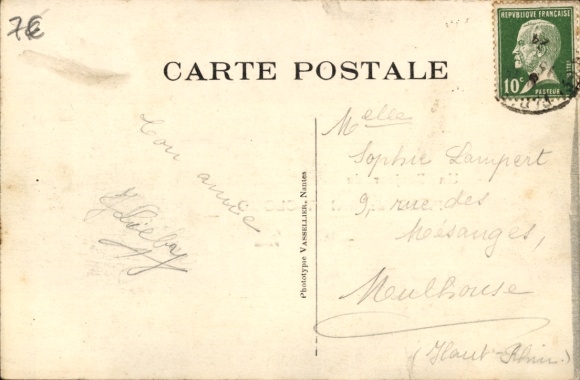 7€
CARTE POSTALE
REPUBLIQUE FRANÇAISE
10c
PASTEUR
Bon année
Phototypie VASSELLIER, Nantes
Melle
Sophie Lampert
9, rue des
Mésanges,
Mulhouse
(Haut-Rhin)